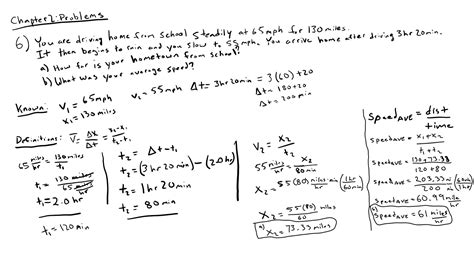 Chapter 2: Problems
6) You are driving home from school steadily at 65mph for 130 miles.
It then begins to rain and you slow to 55mph. You arrive home after driving 3hr 20min.
a) How far is your hometown from school?
b) What was your average speed?
Known:
V₁ = 65mph
x₁ = 130 miles
V₂ = 55mph
Δt = 3hr 20min = 3(60)+20
Δt = 180+20
Δt = 200min
Definitions: V̄ = Δx/Δt = x₂-x₁/t₂-t₁
65 miles/hr = 130 miles/t₁
t₁ = 130 miles/65 miles/hr
t₁ = 2.0hr
t₁ = 120min
t₂ = Δt - t₁
t₂ = (3hr 20min) - (2.0hr)
t₂ = 1hr 20min
t₂ = 80min
V₂ = x₂/t₂
55 miles/hr = x₂/80min
x₂ = 55(80) miles·min/hr (1hr/60min)
x₂ = 55(80)/60 miles
a) x₂ = 73.33 miles
Speed AVE = dist/time
Speed AVE = x₁+x₂/t₁+t₂
Speed AVE = 130+73.33/120+80
Speed AVE = 203.33 mi/200 min (60min/1hr)
Speed AVE = 60.99 mile/hr
b) Speed AVE = 61 miles/hr